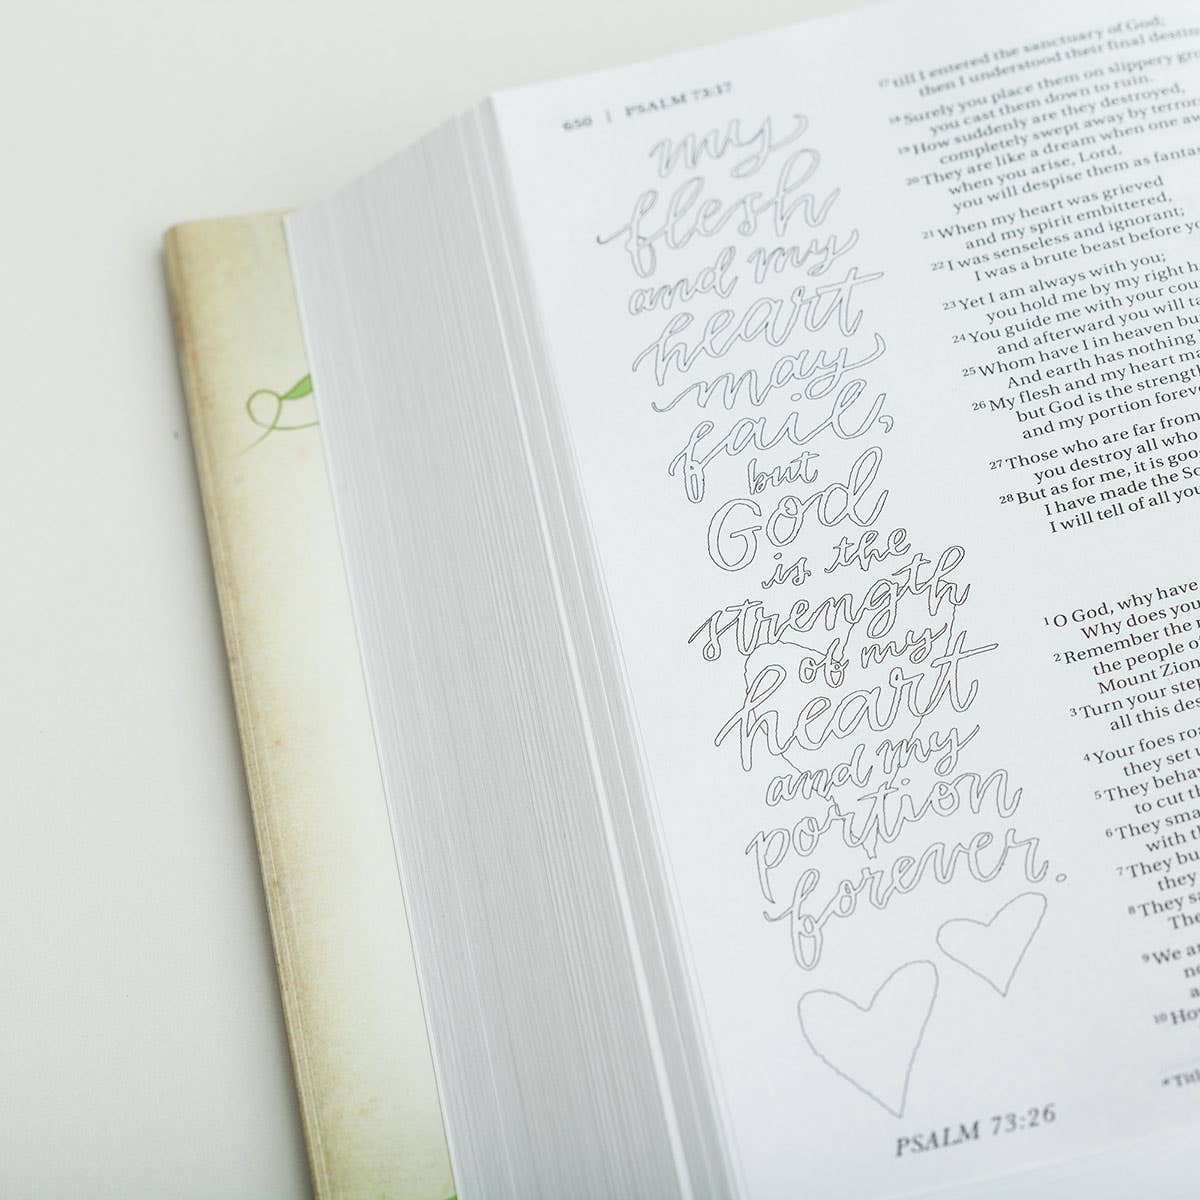 650 | PSALM 73:17
my
flesh
and my
heart
may
fail,
but
God
is the
strength
of my
heart
and my
portion
forever.
PSALM 73:26
17 till I entered the sanctuary of God;
then I understood their final
18 Surely you place them on slippery
you cast them down to ruin.
19 How suddenly are they destroyed,
completely swept away by
20 They are like a dream when one
when you arise, Lord,
you will despise them as
21 When my heart was grieved
and my spirit embittered,
22 I was senseless and ignorant;
I was a brute beast before
23 Yet I am always with you;
you hold me by my right
24 You guide me with your
and afterward you will
25 Whom have I in heaven
And earth has nothing
26 My flesh and my heart
but God is the
and my portion
27 Those who are far from
you destroy all who
28 But as for me, it is
I have made the
I will tell of all
1 O God, why have
Why does
2 Remember the
the people
Mount Zion
3 Turn your
all this
4 Your foes
they set
5 They
to cut
6 They
with
7 They
they
8 They
9 We
10